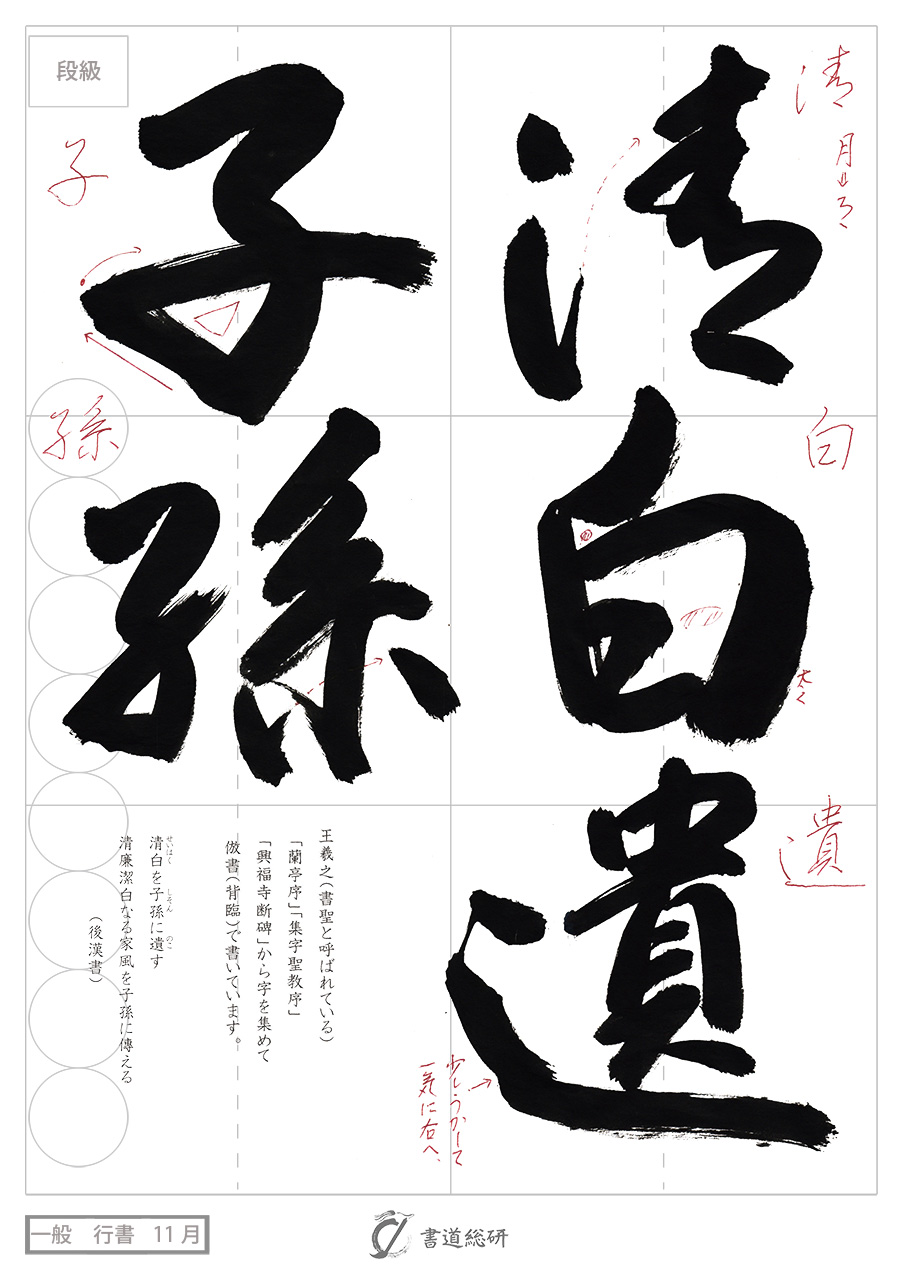 清白遺
子孫
清
月⇒ろ
白
遺
子
孫
段級
王羲之(書聖と呼ばれている)
「蘭亭序」「集字聖教序」
「興福寺断碑」から字を集めて
倣書(背臨)で書いています。
清白を子孫に遺す
せいはく しそん のこ
清廉潔白なる家風を子孫に傳える
(後漢書)
少しうかして
一気に右へ、
一般 行書 11月
書道総研